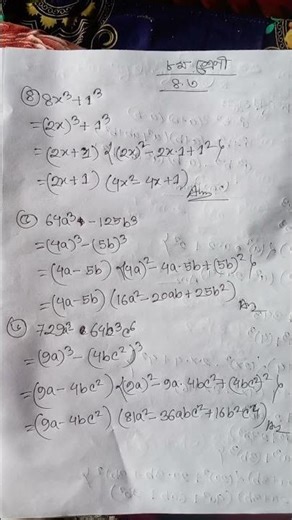 ৮ম শ্রেণী
৪.৩
④ 8x³+1³
=(2x)³+1³
=(2x+1) {(2x)²-2x·1+1²}
=(2x+1) (4x²-4x+1)
Ans
⑤ 64a³-125b³
=(4a)³-(5b)³
=(4a-5b) {(4a)²-4a·5b+(5b)²}
=(4a-5b) (16a²-20ab+25b²)
⑥ 729a³ 64b³c⁶
=(9a)³-(4bc²)³
=(9a-4bc²) {(9a)²-9a·4bc²+(4bc²)²}
=(9a-4bc²) (81a²-36abc²+16b²c⁴)